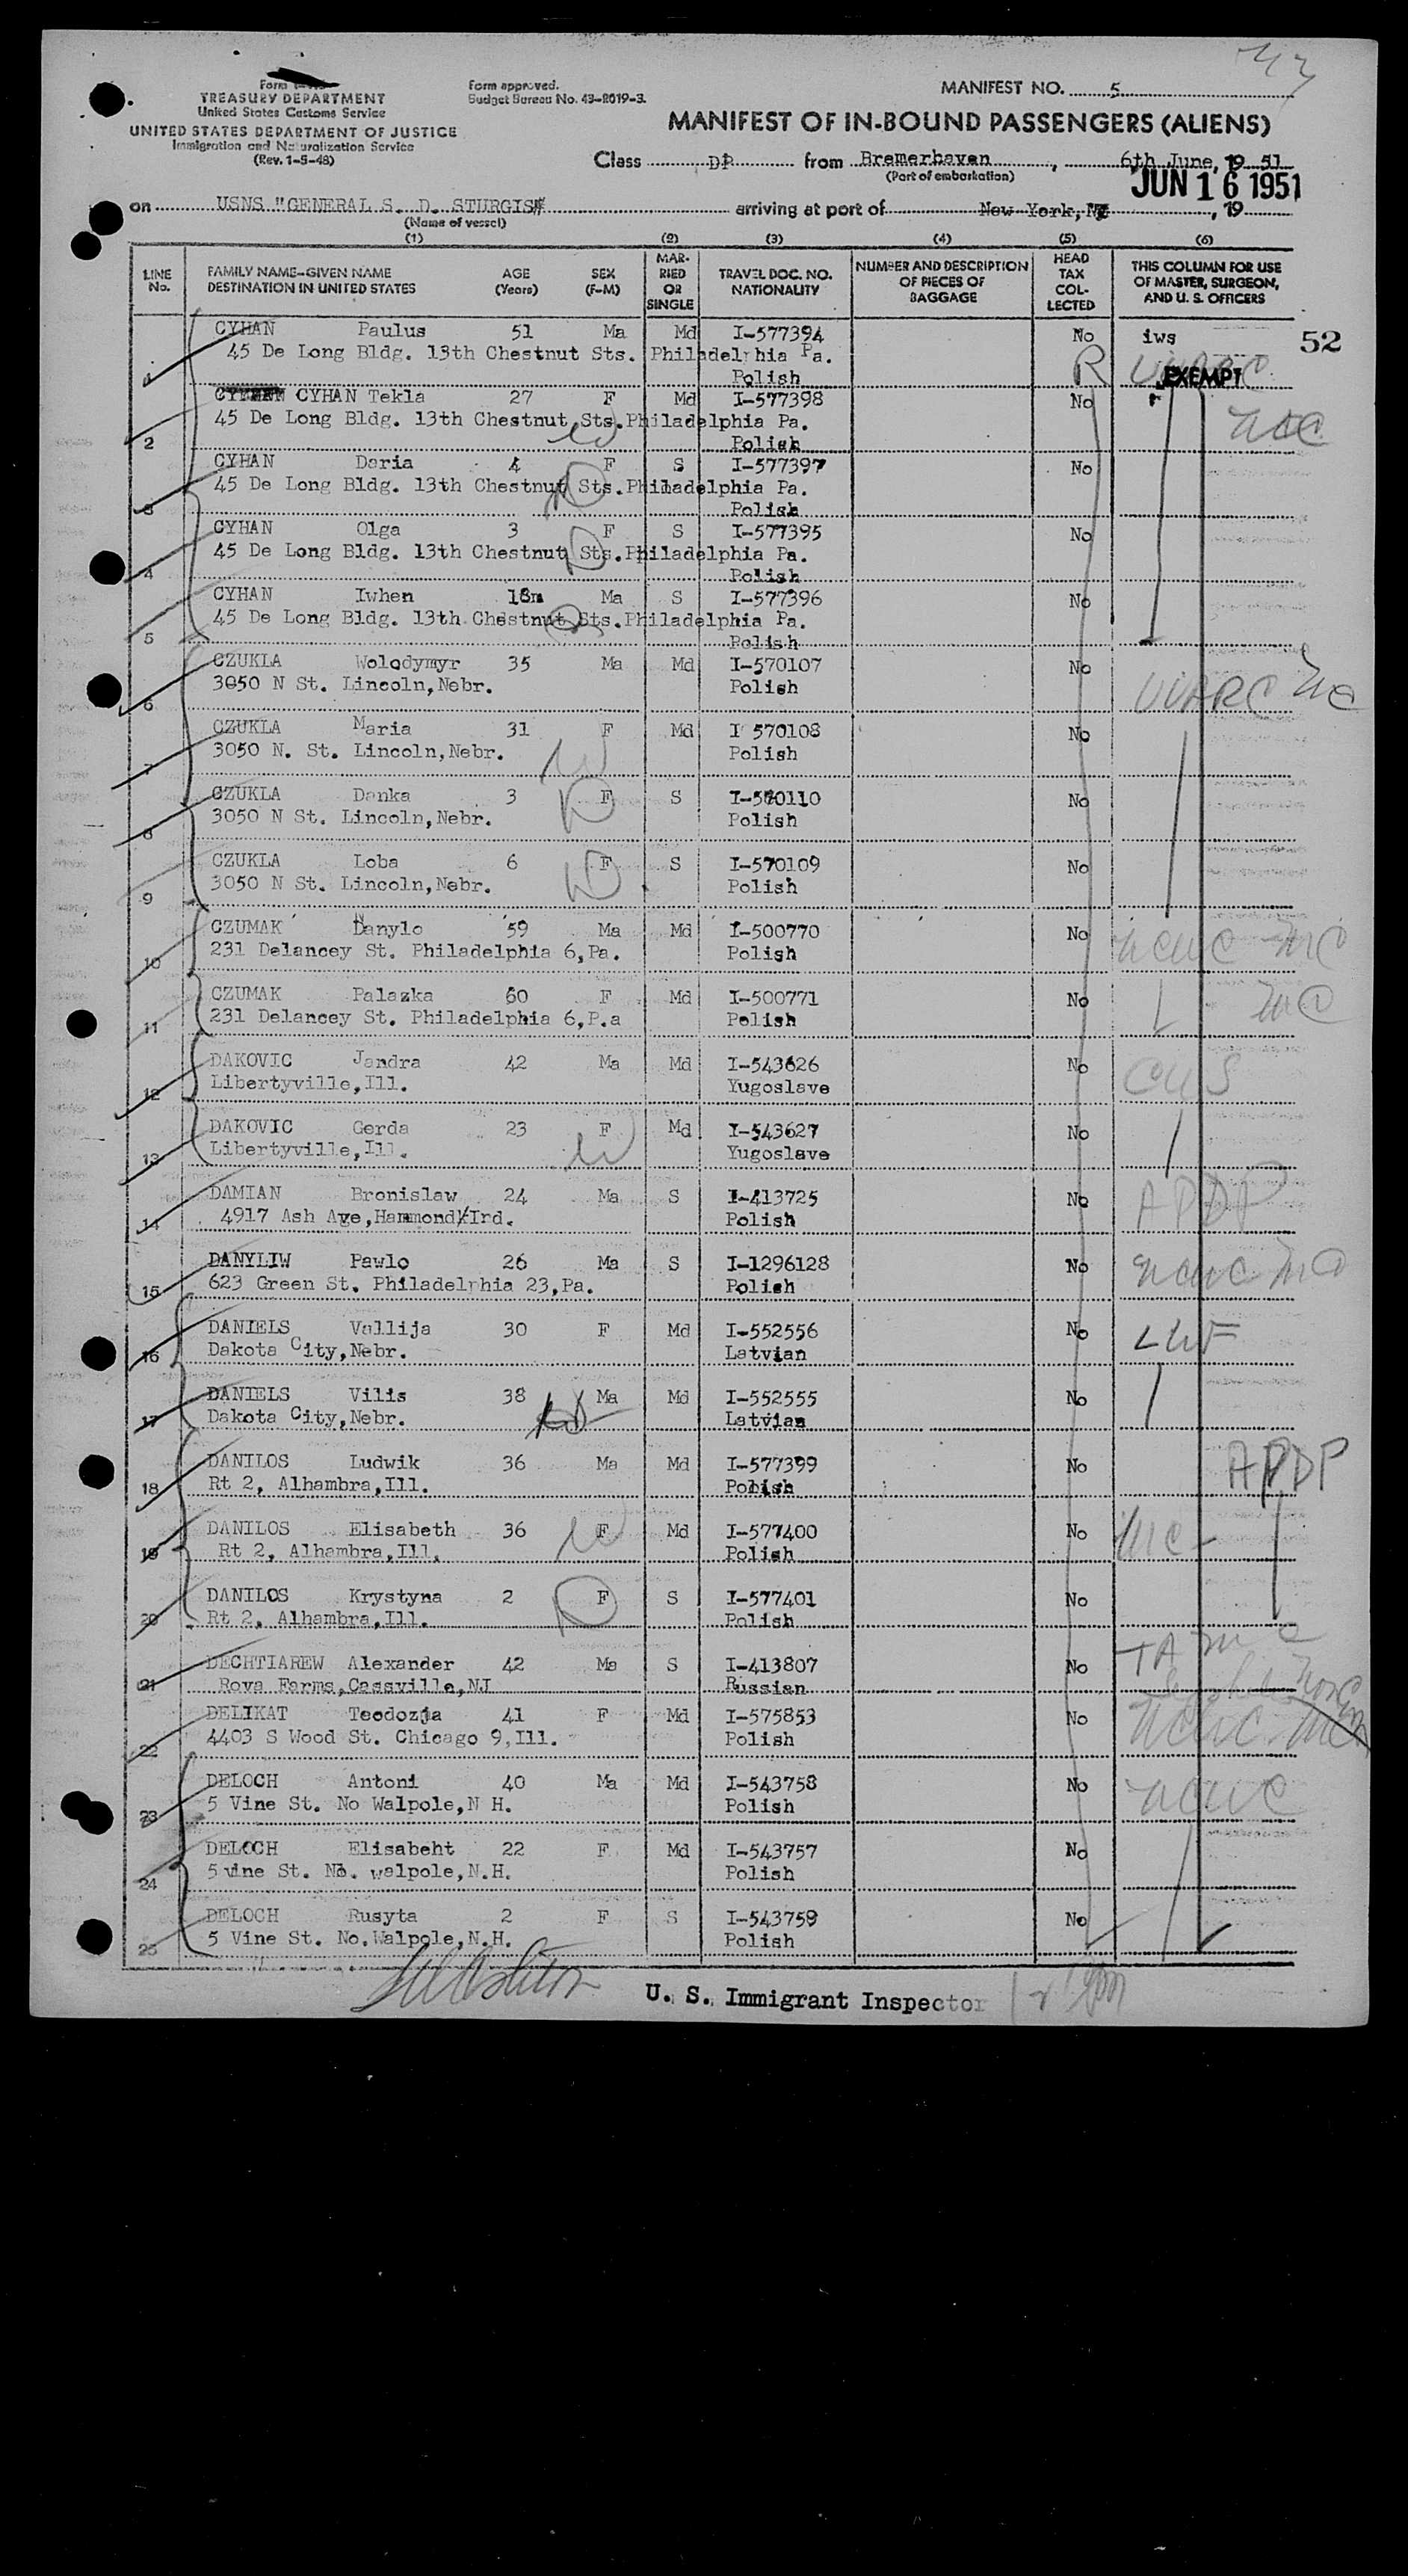 TREASURY DEPARTMENT
United States Customs Service
UNITED STATES DEPARTMENT OF JUSTICE
Immigration and Naturalization Service
(Rev. 1-5-48)
Form approved.
Budget Bureau No. 43-R019-3.
MANIFEST NO. 5
MANIFEST OF IN-BOUND PASSENGERS (ALIENS)
Class DP from Bremerhaven, 6th June, 19 51
(Port of embarkation)
JUN 16 1951
on USNS "GENERAL S. D. STURGIS" arriving at port of New York, NY, 19
(Name of vessel)
(1) (2) (3) (4) (5) (6)
LINE No.
FAMILY NAME-GIVEN NAME DESTINATION IN UNITED STATES
AGE (Years)
SEX (F-M)
MARRIED OR SINGLE
TRAVEL DOC. NO. NATIONALITY
NUMBER AND DESCRIPTION OF PIECES OF BAGGAGE
HEAD TAX COLLECTED
THIS COLUMN FOR USE OF MASTER, SURGEON, AND U. S. OFFICERS
1 CYHAN Paulus 51 Ma Md I-577394 No iws 52
45 De Long Bldg. 13th Chestnut Sts. Philadelphia Pa.
Polish R EXEMPT
2 CYHAN Tekla 27 F Md I-577398 No
45 De Long Bldg. 13th Chestnut Sts. Philadelphia Pa.
Polish
3 CYHAN Daria 4 F S I-577397 No
45 De Long Bldg. 13th Chestnut Sts. Philadelphia Pa.
Polish
4 CYHAN Olga 3 F S I-577395 No
45 De Long Bldg. 13th Chestnut Sts. Philadelphia Pa.
Polish
5 CYHAN Iwhen 18m Ma S I-577396 No
45 De Long Bldg. 13th Chestnut Sts. Philadelphia Pa.
Polish
6 CZUKLA Wolodymyr 35 Ma Md I-570107 No
3050 N St. Lincoln, Nebr. Polish UUARC
7 CZUKLA Maria 31 F Md I 570108 No
3050 N. St. Lincoln, Nebr. Polish
8 CZUKLA Danka 3 F S I-570110 No
3050 N St. Lincoln, Nebr. Polish
9 CZUKLA Loba 6 F S I-570109 No
3050 N St. Lincoln, Nebr. Polish
10 CZUMAK Danylo 59 Ma Md I-500770 No NCWC
231 Delancey St. Philadelphia 6, Pa. Polish
11 CZUMAK Palazka 60 F Md I-500771 No
231 Delancey St. Philadelphia 6, P.a Polish
12 DAKOVIC Jandra 42 Ma Md I-543626 No CWS
Libertyville, Ill. Yugoslave
13 DAKOVIC Gerda 23 F Md I-543627 No
Libertyville, Ill. Yugoslave
14 DAMIAN Bronislaw 24 Ma S I-413725 No APDP
4917 Ash Ave, Hammond, Ind. Polish
15 DANYLIW Pawlo 26 Ma S I-1296128 No NCWC
623 Green St. Philadelphia 23, Pa. Polish
16 DANIELS Vallija 30 F Md I-552556 No LWF
Dakota City, Nebr. Latvian
17 DANIELS Vilis 38 Ma Md I-552555 No
Dakota City, Nebr. Latvian
18 DANILOS Ludwik 36 Ma Md I-577399 No APDP
Rt 2, Alhambra, Ill. Polish
19 DANILOS Elisabeth 36 F Md I-577400 No
Rt 2, Alhambra, Ill. Polish
20 DANILOS Krystyna 2 F S I-577401 No
Rt 2, Alhambra, Ill. Polish
21 DECHTIAREW Alexander 42 Ma S I-413807 No
Rova Farms, Cassville, NJ Russian
22 DELIKAT Teodozja 41 F Md I-575853 No NCWC
4403 S Wood St. Chicago 9, Ill. Polish
23 DELOCH Antoni 40 Ma Md I-543758 No NCWC
5 Vine St. No Walpole, N H. Polish
24 DELOCH Elisabeht 22 F Md I-543757 No
5 vine St. No. walpole, N.H. Polish
25 DELOCH Rusyta 2 F S I-543759 No
5 Vine St. No. Walpole, N.H. Polish
U. S. Immigrant Inspector